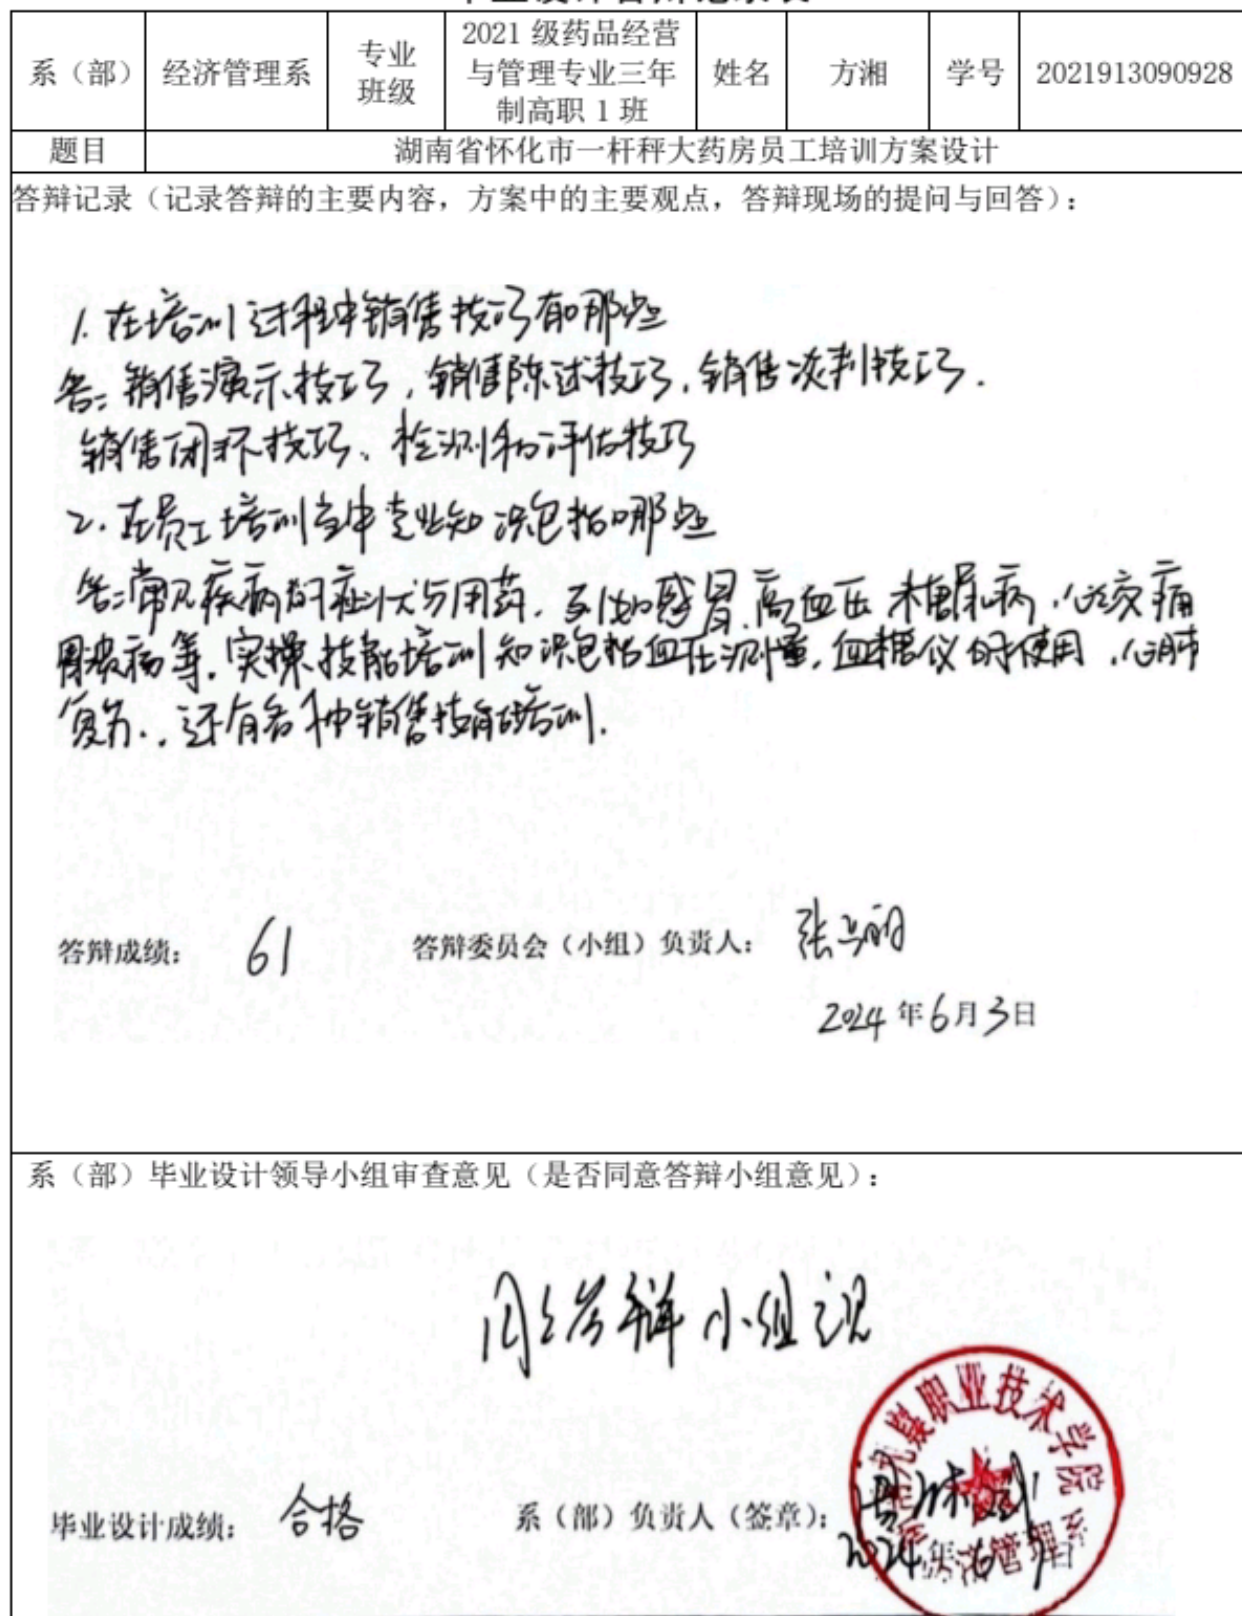 系（部） 经济管理系 专业班级 2021 级药品经营与管理专业三年制高职 1 班 姓名 方湘 学号 2021913090928
题目 湖南省怀化市一杆秤大药房员工培训方案设计
答辩记录（记录答辩的主要内容，方案中的主要观点，答辩现场的提问与回答）：
1. 在培训过程中销售技巧有那些
答：销售演示技巧，销售陈述技巧，销售谈判技巧.
销售闭环技巧、检测和评估技巧
2. 在员工培训当中专业知识包括哪些
答：常见疾病的症状与用药，比如感冒、高血压、糖尿病、心绞痛
胃溃疡等，实操技能培训知识包括血压测量，血糖仪的使用，心肺
复苏，还有各种销售技能培训.
答辩成绩： 61 答辩委员会（小组）负责人： 张
2024 年 6 月 3 日
系（部）毕业设计领导小组审查意见（是否同意答辩小组意见）：
同意答辩小组意见
职业技术学院
毕业设计成绩： 合格 系（部）负责人（签章）：
2024 年 6